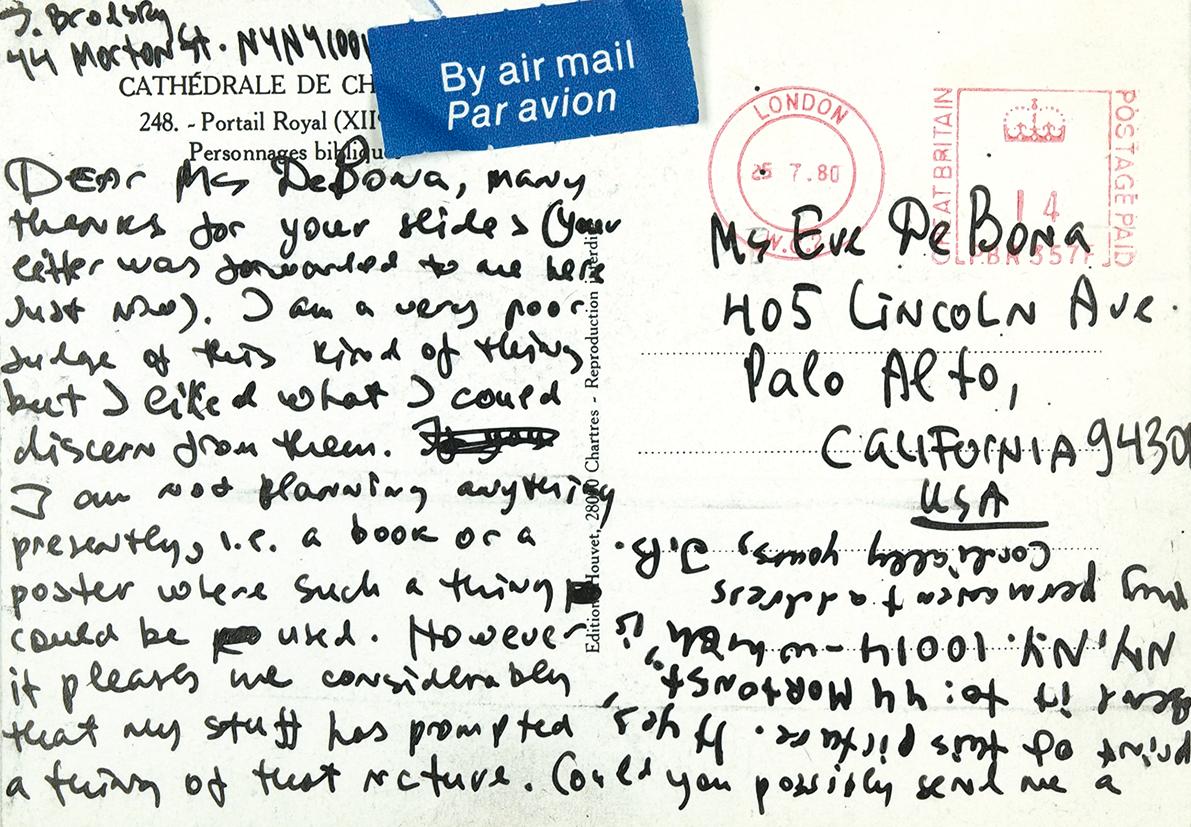 J. Brodsky
44 Morton St. NYNY1001
CATHÉDRALE DE CH
248. - Portail Royal (XII
Personnages bibliqu
By air mail
Par avion
LONDON
25 7.80
W.C.2
GREAT BRITAIN
14
PBR 357
POSTAGE PAID
Dear Ms DeBona, many
thanks for your slides (your
letter was forwarded to me here
just now). I am a very poor
judge of this kind of thing
but I liked what I could
discern from them.
I am not planning anything
presently, i.e. a book or a
poster where such a thing
could be used. However
it pleases me considerably
that my stuff has prompted
a thing of that nature. Could you possibly send me a
print of this picture. If yes,
send it to: 44 MORTON ST.,
NY, NY. 10014 - which is
my permanent address
Cordially yours, J.B.
Ms Eve DeBona
405 Lincoln Ave.
Palo Alto,
CALIFORNIA 9430
USA
Editions Houvet, 28000 Chartres - Reproduction interdi